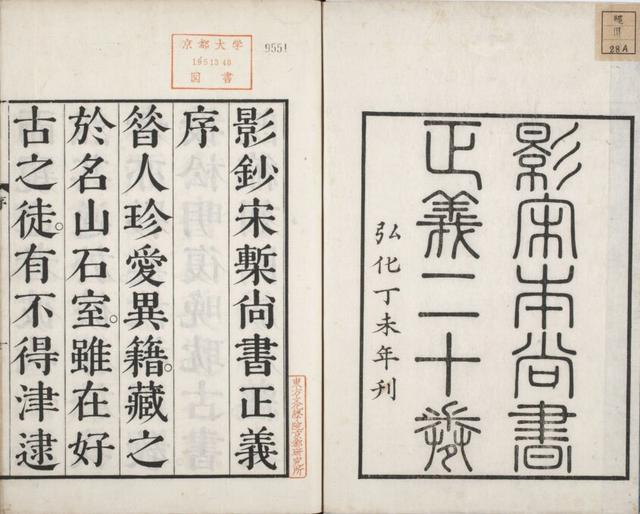 影宋本尚書
正義二十卷
弘化丁未年刊
影鈔宋槧尙書正義
序
昝人珍愛異籍。藏之
於名山石室。雖在好
古之徒。有不得津逮
序
京都大学
图書
9551
28A
東方文化學院京都研究所